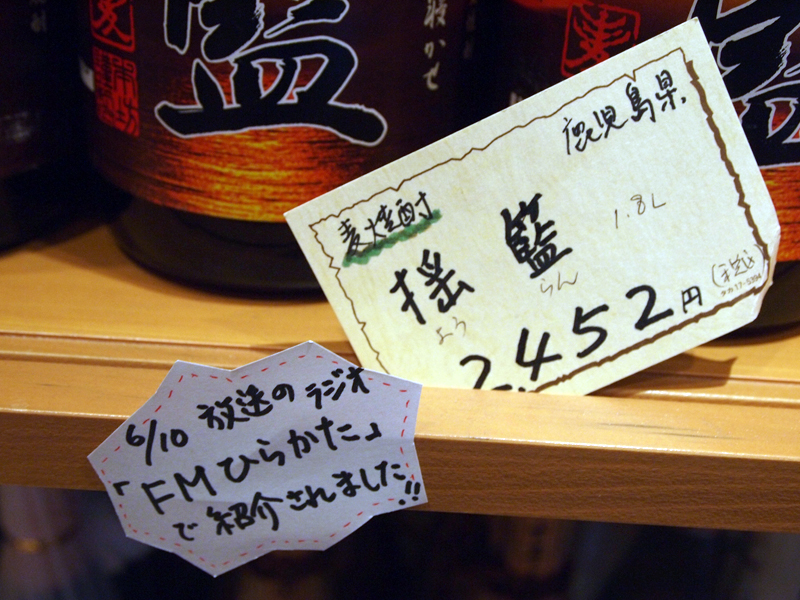 籃
寝かせ
鹿児島県
麦焼酎
揺籃
ようらん
1.8L
2,452円
(税込)
タカ17-5394
6/10 放送のラジオ
「FMひらかた」
で紹介されました!!